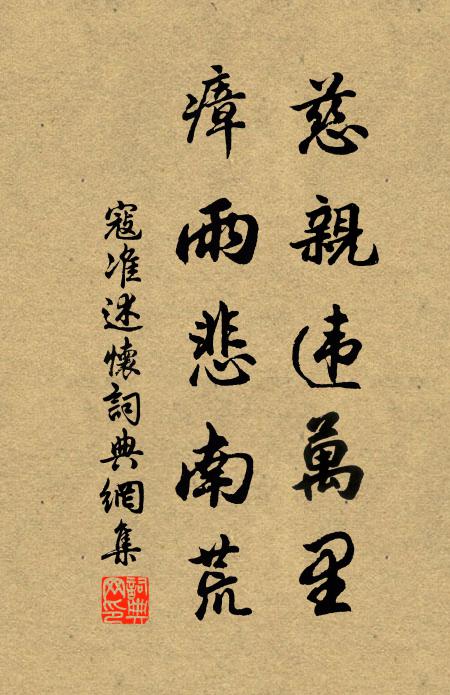 慈親违萬里
瘴雨悲南荒
寇准述懷詞典網集
詞典网印